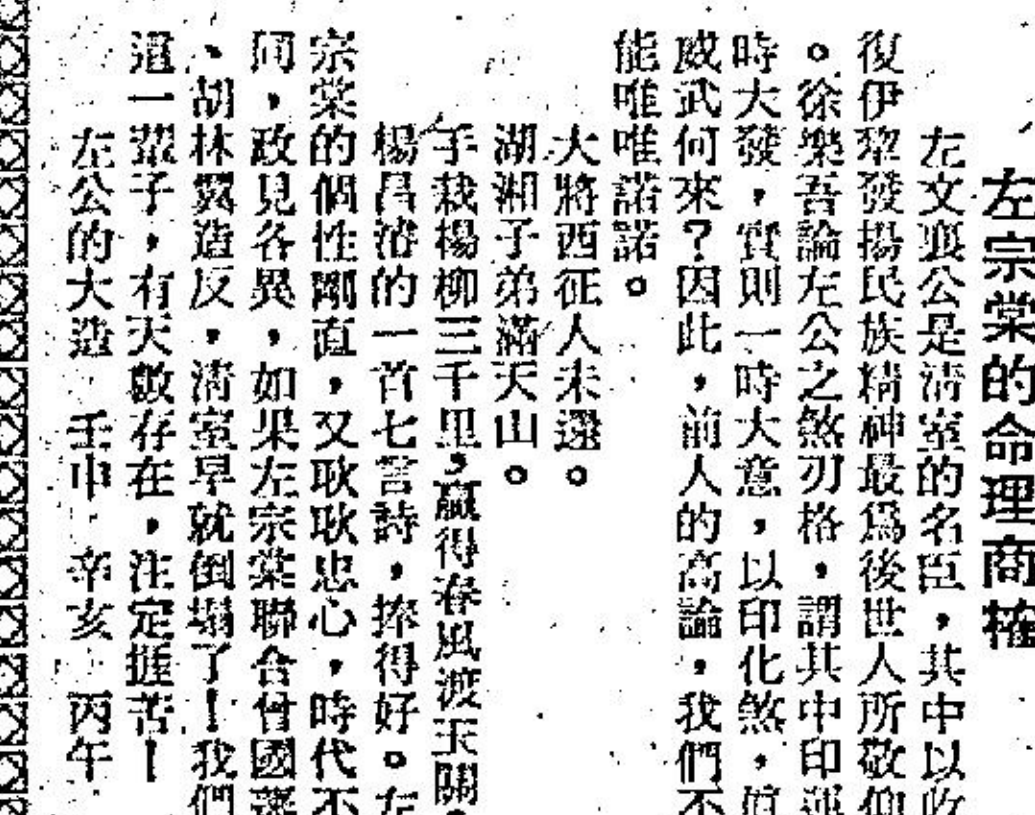 左宗棠的命理商榷
左文襄公是清室的名臣，其中以收
復伊犂發揚民族精神最爲後世人所敬仰
。徐樂吾論左公之煞刃格，謂其中印運
時大發，實則一時大意，以印化煞，
威武何來？因此，前人的高論，我們不
能唯唯諾諾。
大將西征人未還。
湖湘子弟滿天山。
手栽楊柳三千里，贏得春風渡玉關。
楊昌濬的一首七言詩，捧得好。左
宗棠的個性剛直，又耿耿忠心，時代不
同，政見各異，如果左宗棠聯合曾國藩
、胡林翼造反，清室早就倒塌了！我們
這一輩子，有天數存在，注定捱苦！
左公的大造　壬申　辛亥　丙午